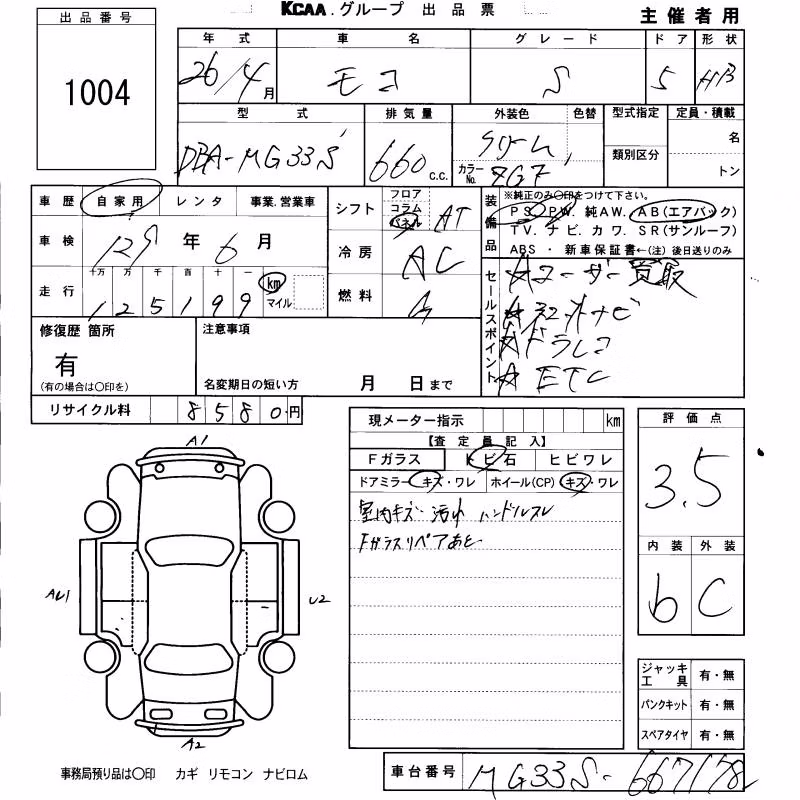 KCAA.グループ 出品票
主催者用
出品番号
1004
年式 車名 グレード ドア 形状
26/4月 モコ S 5 HB
型式 排気量 外装色 色替 型式指定 定員・積載
DBA-MG33S 660 c.c. クリーム カラーNo. ZGF 類別区分 名 トン
車歴 自家用 レンタ 事業.営業車
シフト フロア コラム パネル AT
装備品 ※純正のみ〇印をつけて下さい。
PS. PW. 純AW. AB(エアバック)
TV. ナビ. カワ. SR(サンルーフ)
ABS ・ 新車保証書←(注)後日送りのみ
車検 129年6月
冷房 AC
走行 十万 万 千 百 十 一
125199 km マイル
燃料
セールスポイント
☆ユーザー買取
☆社外ナビ
☆ドラレコ
☆ETC
修復歴 箇所
有
(有の場合は〇印を)
注意事項
名変期日の短い方 月 日まで
リサイクル料 8580円
現メーター指示 km
【査定員記入】
Fガラス トビ石 ヒビワレ
ドアミラー キズ・ワレ ホイール(CP) キズ・ワレ
室内キズ 汚れ ハンドルスレ
Fガラスリペアあと
評価点
3.5
内装 外装
b C
A1
AU1
U2
A2
ジャッキ工具 有・無
パンクキット 有・無
スペアタイヤ 有・無
事務局預り品は〇印 カギ リモコン ナビロム
車台番号 MG33S-667178